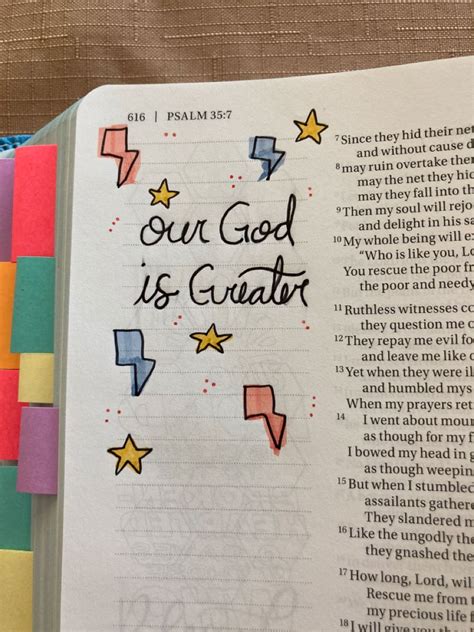 616 | PSALM 35:7
our God
is Greater
7 Since they hid their net
and without cause d
8 may ruin overtake them
may the net they hid
may they fall into th
9 Then my soul will rejo
and delight in his sa
10 My whole being will ex
"Who is like you, Lo
You rescue the poor fr
the poor and needy
11 Ruthless witnesses co
they question me o
12 They repay me evil fo
and leave me like o
13 Yet when they were ill
and humbled mys
When my prayers ret
14 I went about mour
as though for my f
I bowed my head in g
as though weepin
15 But when I stumbled
assailants gathere
They slandered m
16 Like the ungodly the
they gnashed the
17 How long, Lord, wil
Rescue me from t
my precious life f
18 I will give you tha